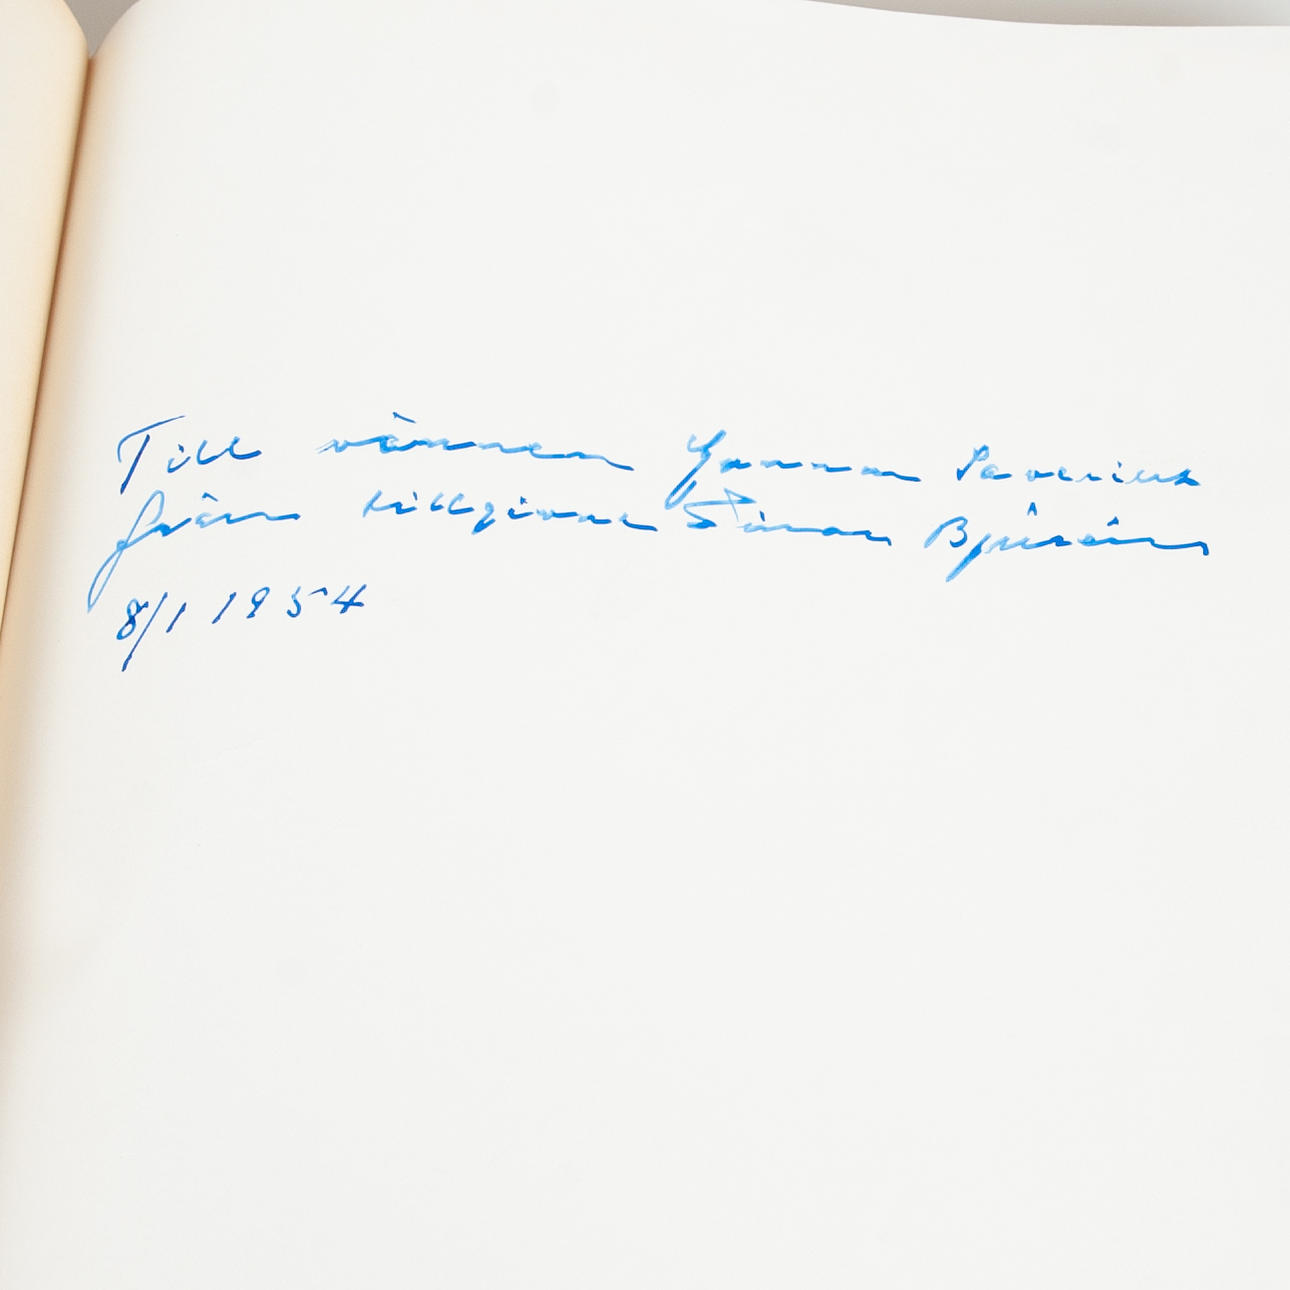 Till vännen Gunnar Saverius
från tillgivne Túran Bjurén
8/1 1954